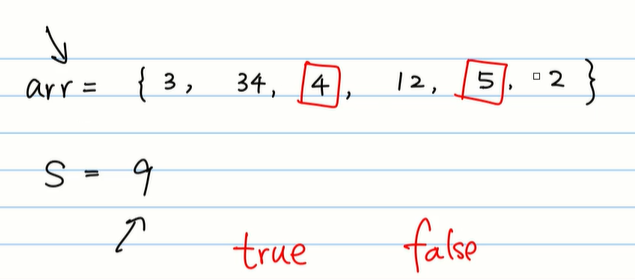 arr = { 3, 34, 4, 12, 5, 2 }
S = 9
true false